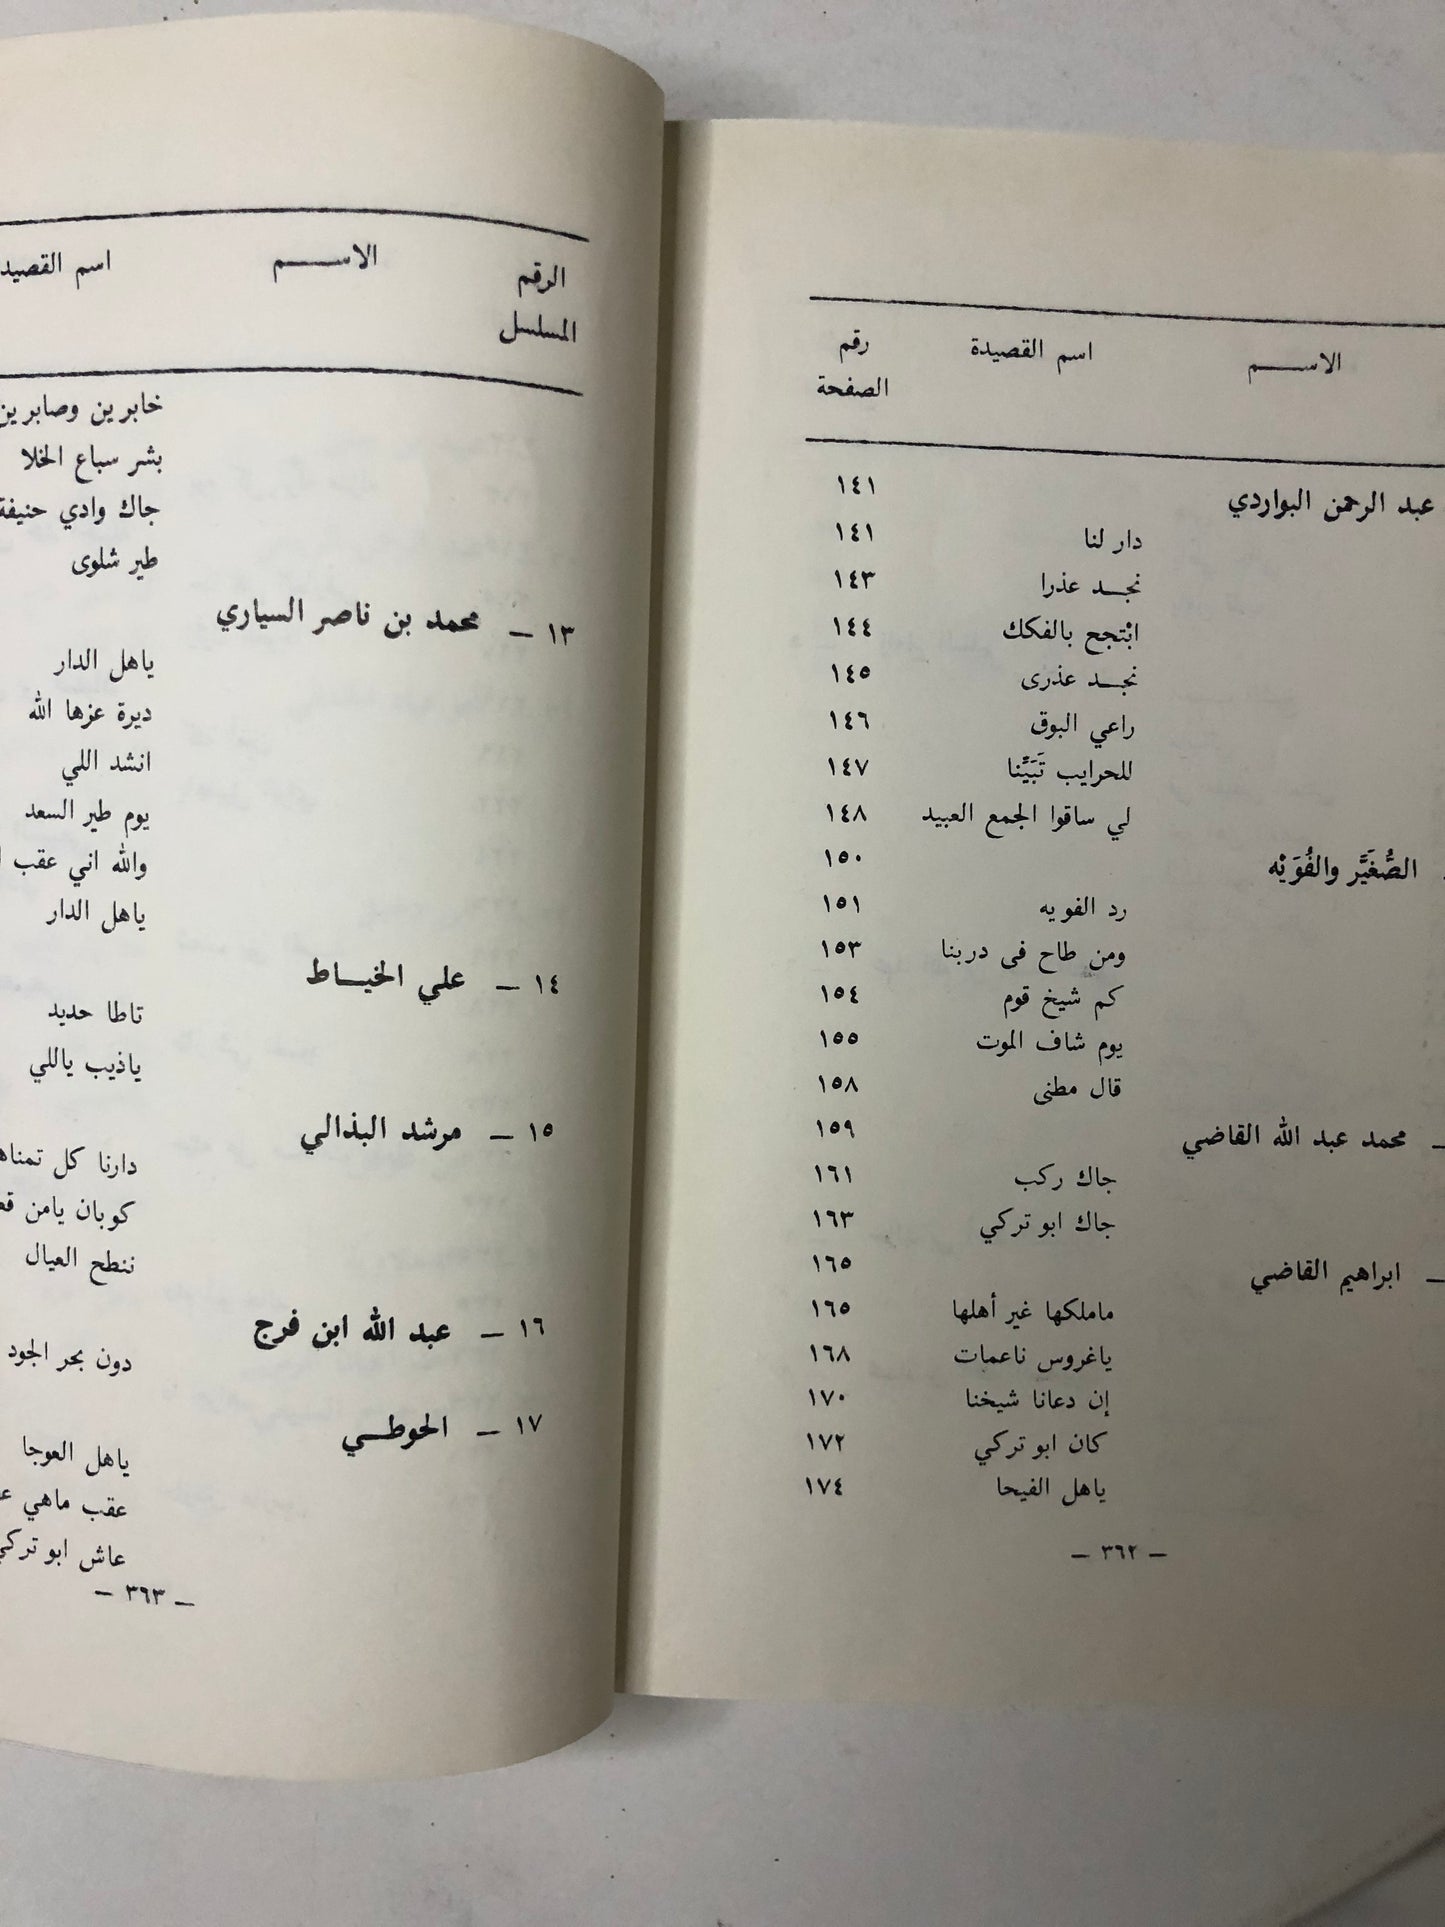 الاســـم اسم القصيدة رقم
الصفحة
عبد الرحمن البواردي ١٤١
دار لنا ١٤١
نجـــد عذرا ١٤٣
ابْتجح بالفكك ١٤٤
نجـــد عذرى ١٤٥
راعي البوق ١٤٦
للحرايب تَبَيَّنا ١٤٧
لي ساقوا الجمع العبيد ١٤٨
الصُّغَيَّر والفُوَيْه ١٥٠
رد الفويه ١٥١
ومن طاح فى دربنا ١٥٣
كم شيخ قوم ١٥٤
يوم شاف الموت ١٥٥
قال مطنى ١٥٨
ـ محمد عبد الله القاضي ١٥٩
جاك ركب ١٦١
جاك ابو تركي ١٦٣
ـ ابراهيم القاضي ١٦٥
ماملكها غير أهلها ١٦٥
ياغروس ناعمات ١٦٨
إن دعانا شيخنا ١٧٠
كان ابو تركي ١٧٢
ياهل الفيحا ١٧٤
ـ ٣٦٢ ـ
الرقم الاســـم اسم
المسلسل
خابرين وصابرين
بشر سباع الخلا
جاك وادي حنيفة
طير شلوى
١٣ ـ محمد بن ناصر السياري
ياهل الدار
ديرة عزها الله
انشد اللي
يوم طير السعد
والله اني عقب
ياهل الدار
١٤ ـ علي الخيـــاط
تاطا حديد
ياذيب ياللي
١٥ ـ مرشد البذالي
دارنا كل
كوبان يامن
ننطح العيال
١٦ ـ عبد الله ابن فرج
دون بحر الجود
١٧ ـ الحوطـــي
ياهل العوجا
عقب ماهي
عاش ابو تركي
ـ ٣٦٣ ـ